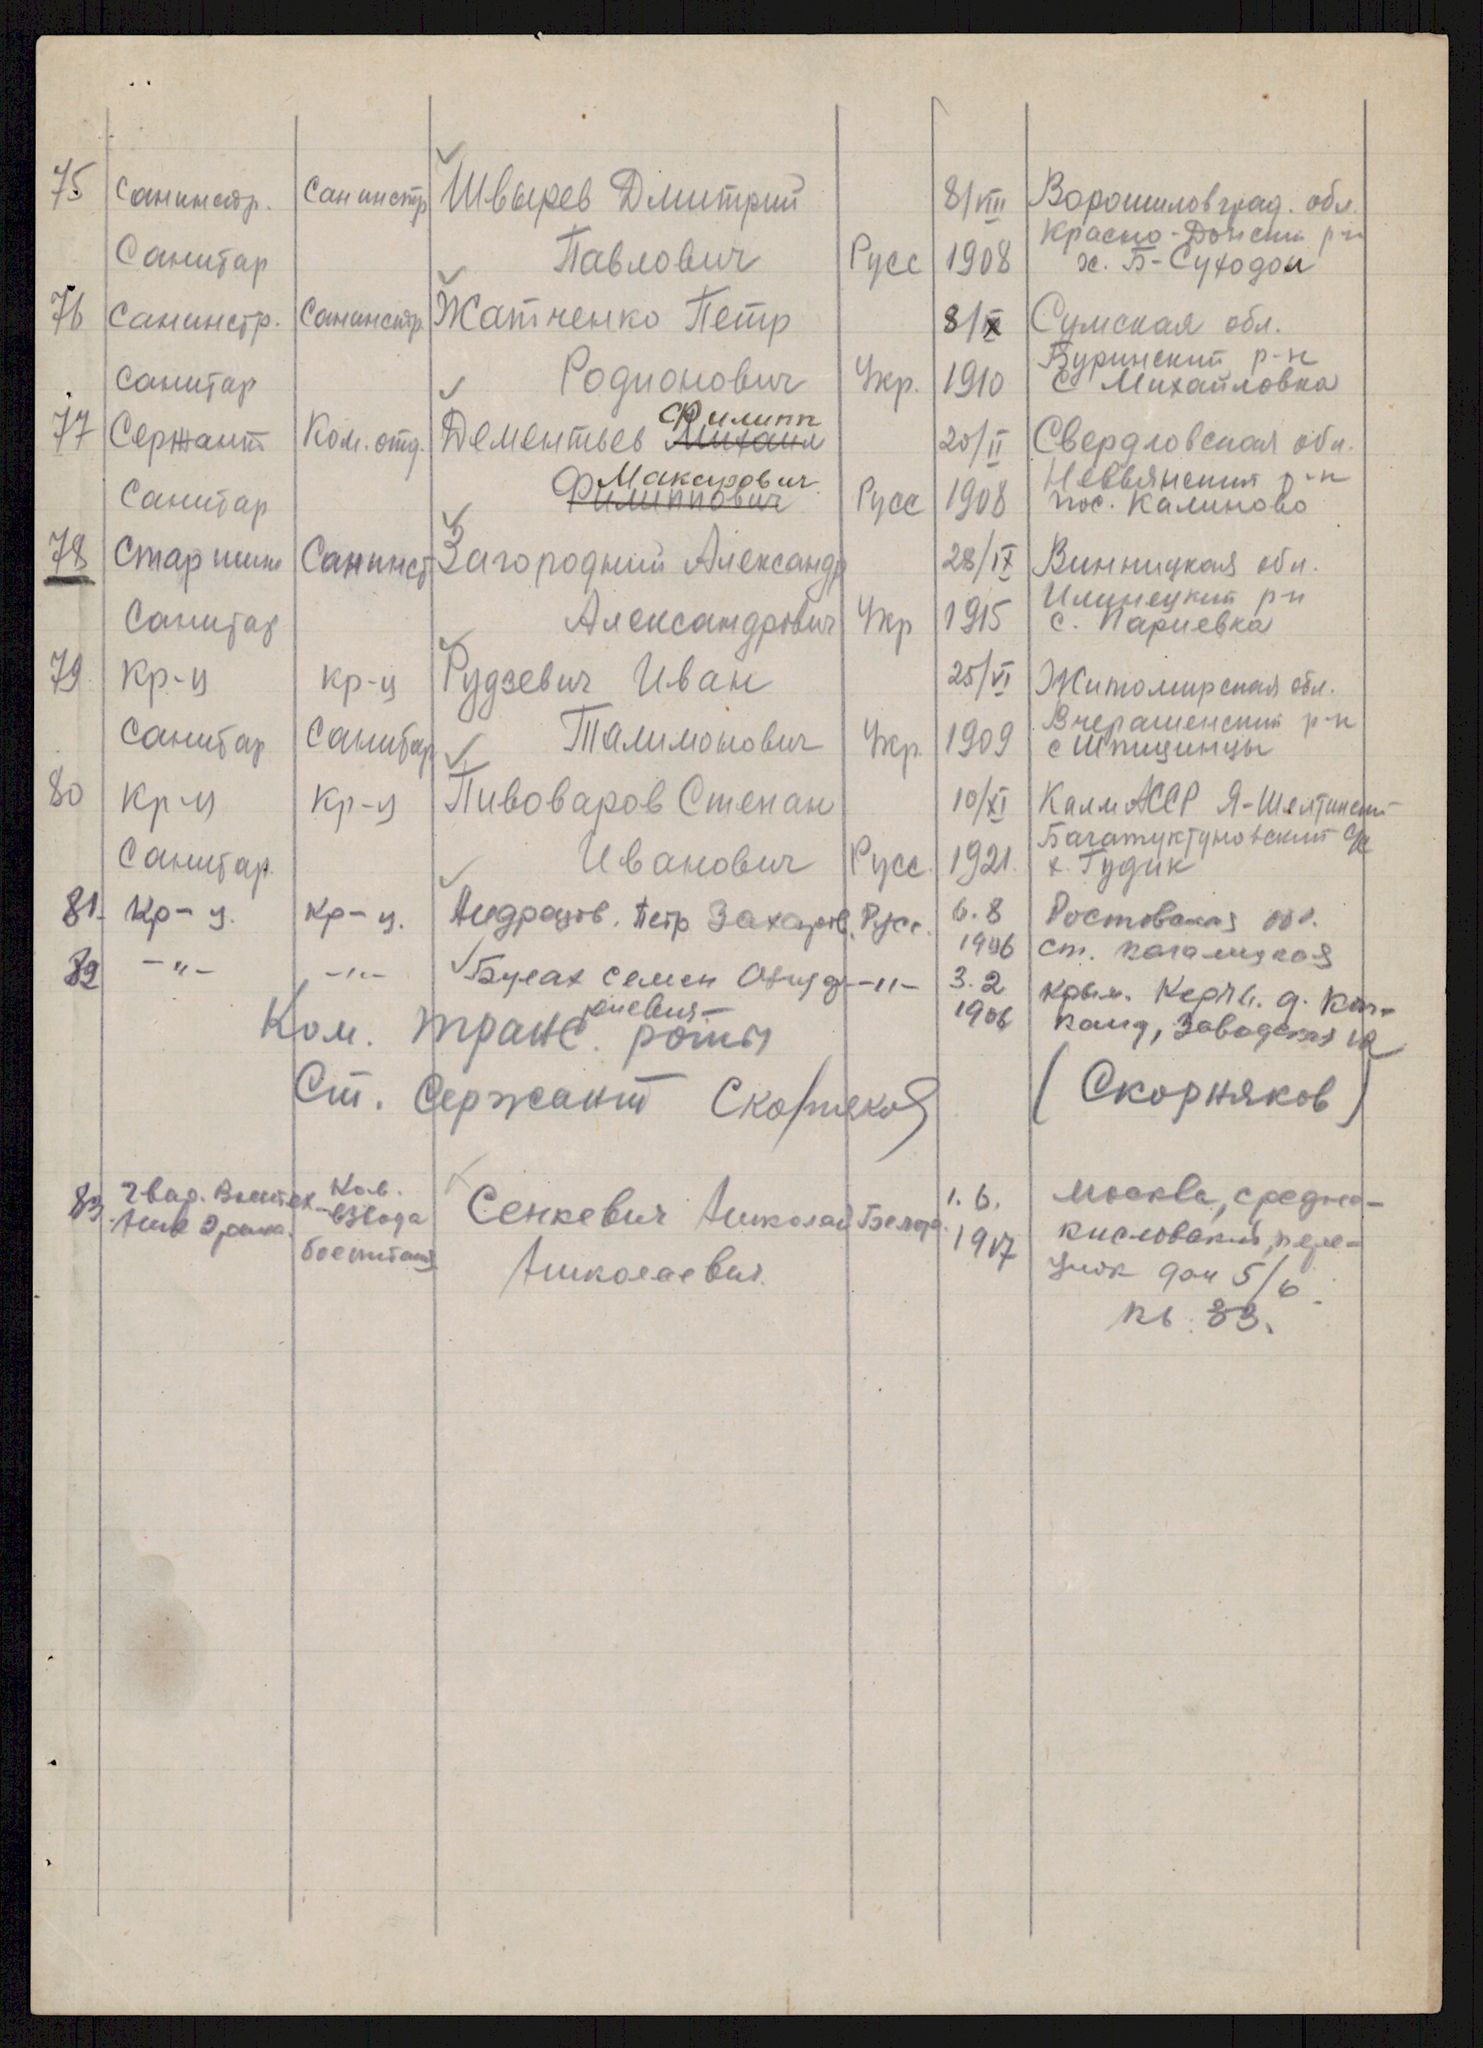 75 Санинстр. Санинстр Швырев Дмитрий 8/VIII Ворошиловград. обл.
Красно-Донский р-н
Санитар Павлович Русс 1908 х. Б-Суходол
76 Санинстр. Санинстр. Жатченко Петр 8/IX Сумская обл.
Буринский р-н
санитар Родионович Укр. 1910 с Михайловка
Филипп
77 Сержант Ком. отд. Дементьев Михаил 20/II Свердловская обл.
Максимович Невьянский р-н
Санитар Филиппович Русс 1908 пос. Калиново
78 Старшина Санинст Загородний Александр 28/IX Винницкая обл.
Илинецкий р-н
Санитар Александрович Укр 1915 с. Париевка
79 Кр-ц кр-ц Рудзевич Иван 25/VI Житомирская обл.
Вчерашенский р-н
Санитар Санитар Талимонович Укр. 1909 с Шпицинцы
80 Кр-ц Кр-ц Пивоваров Степан 10/XI КалмАССР Я-Шелтинский
Багатуктуновский
Санитар. Иванович Русс. 1921. х. Гудик
81. Кр-ц. Кр-ц. Петр Захаров. Русс. 6.8 Ростовская обл.
1906 ст. Кагальницкая
82 -"- -"- Булах Семен -"- 3.2 Крым. Керчь.
1906 Заводская
Ком. транс. роты
Ст. Сержант Скорняков (Скорняков)
83. Ком. Сенкевич Николай Белор. 1.6. Москва, средне-
взвода 1917 кисловский, пере-
Николаевич. улок дом 5/6.
кв. 33.